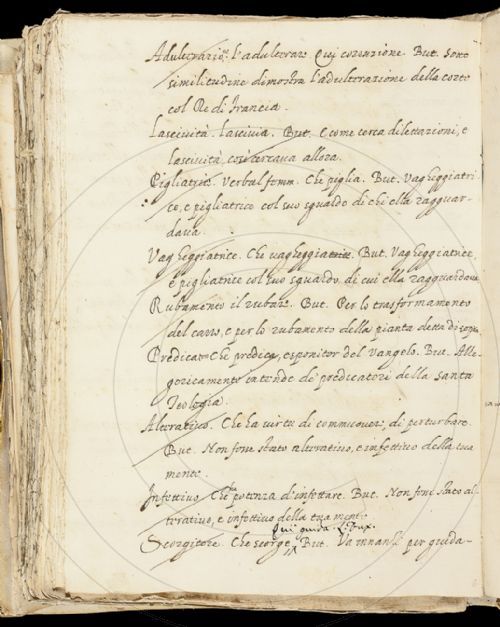 Adulterazio.ne l'adulterare. Qui corruzione. But. Sotto
similitudine dimostra l'adulterazione della corte
col Re di Francia.
Lascività. Lascivia. But. E come cerca dilettazioni, e
lascività così cercava allora.
Pigliatrice. Verbal femm. Che piglia. But. Vagheggiatri-
ce, e pigliatrice col suo sguardo di chi ella ragguar-
dava.
Vagheggiatrice. Che vagheggia. But. Vagheggiatrice,
e pigliatrice col suo sguardo, di cui ella ragguardava
Rubamento il rubare. But. Per lo trasformamento
del carro, e per lo rubamento della pianta detta di sopra
Predicatore Che predica, espositor del Vangelo. But. Alle-
goricamente intende de' predicatori della Santa
Teologia.
Alterativo. Che ha virtù di commuovere, di perturbare.
But. Non fone stato alterativo, e infettivo della tua
mente.
Infettivo. Che ha potenza d'infettare. But. Non foni stato al-
terativo, e infettivo della tua mente
Qui guida. L. Dux.
Scorgitore. Che scorge. But. Va innanzi per guida-